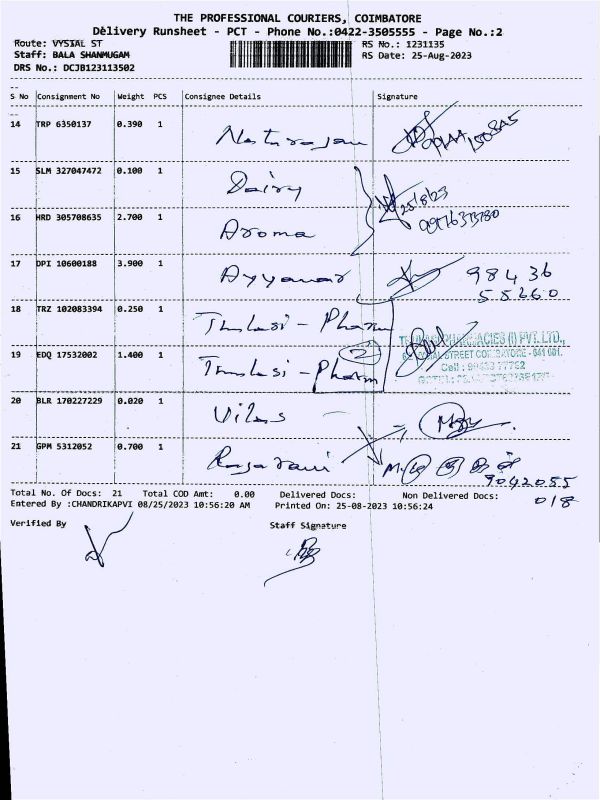 THE PROFESSIONAL COURIERS, COIMBATORE
Delivery Runsheet - PCT - Phone No.:0422-3505555 - Page No.:2
Route: VYSIAL ST RS No.: 1231135
Staff: BALA SHANMUGAM RS Date: 25-Aug-2023
DRS No.: DCJB123113502
S No Consignment No Weight PCS Consignee Details Signature
14 TRP 6350137 0.390 1 Natarajan
15 SLM 327047472 0.100 1 Dairy 25/8/23
16 HRD 305708635 2.700 1 Aroma
17 DPI 10600188 3.900 1 Ayyanar 98436
55660
18 TRZ 102083394 0.250 1 Thulasi - Pharm
PHARMACIES (I) PVT. LTD.,
19 EDQ 17532002 1.400 1 Thulasi - Pharm 2 STREET COIMBATORE - 641 001.
Cell :
20 BLR 170227229 0.020 1 Vilas
21 GPM 5312052 0.700 1 Rajarani
9042055
018
Total No. Of Docs: 21 Total COD Amt: 0.00 Delivered Docs: Non Delivered Docs:
Entered By :CHANDRIKAPVI 08/25/2023 10:56:20 AM Printed On: 25-08-2023 10:56:24
Verified By Staff Signature